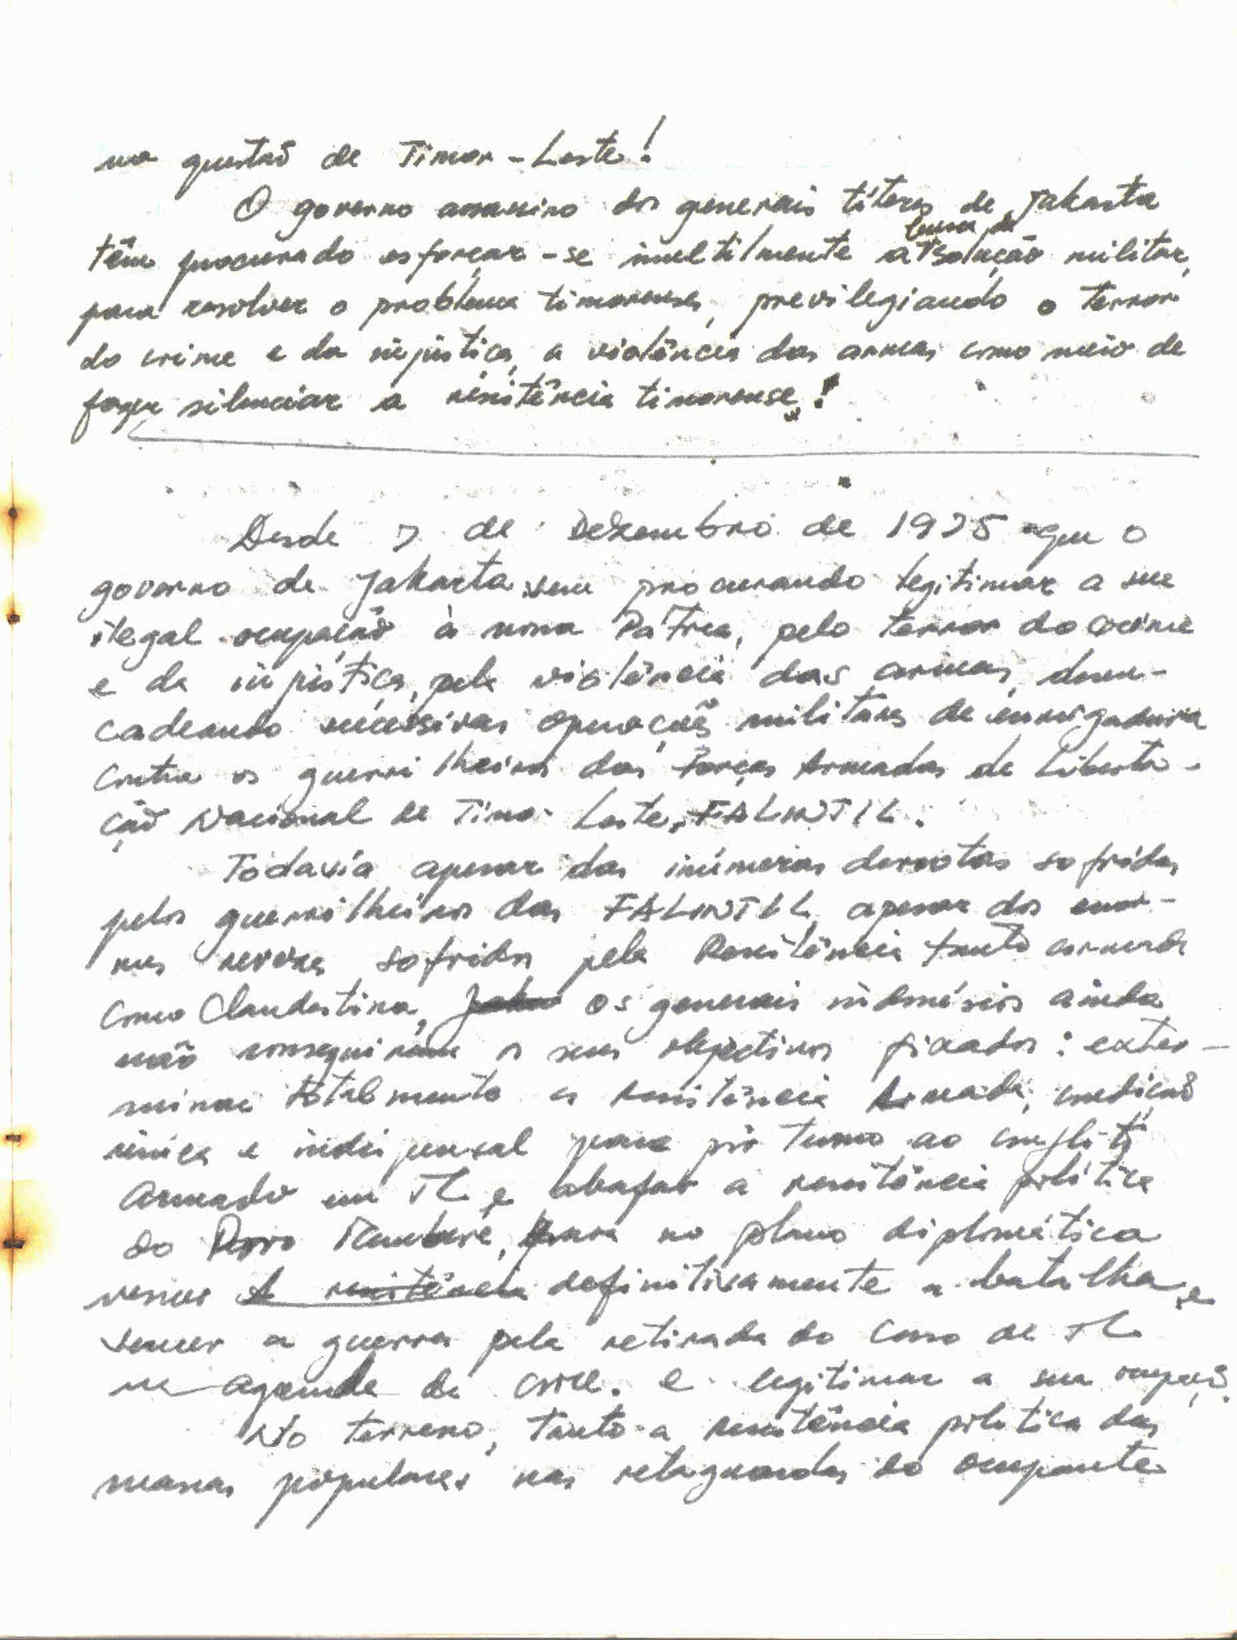 na questão de Timor-Leste!
O governo assassino dos generais títeres de Jakarta
têm procurado esforçar-se inultilmente a solução militar,
para resolver o problema timorense, previlegiando o terror
do crime e da injustiça, a violência das armas como meio de
fazer silenciar a resistência timorense!
Desde 7 de Dezembro de 1975 que o
governo de Jakarta vem procurando legitimar a sua
ilegal ocupação à nossa Pátria, pelo terror do crime
e da injustiça, pela violência das armas, desen-
cadeando sucessivas operações militares de envergadura
contra os guerrilheiros das Forças Armadas de Liberta-
ção Nacional de Timor-Leste, FALINTIL.
Todavía apesar das inúmeras derrotas sofridas
pelos guerrilheiros das FALINTIL, apesar dos enor-
mes revezes sofridos pela Resistência tanto armada
como Clandestina, os generais indonésios ainda
não conseguiram os seus objectivos fixados: exter-
minar totalmente a resistência Armada, condição
única e indispensal para pôr termo ao conflito
armado em TL e abafar a resistência política
do Povo Maubere, para no plano diplomática
vencer definitivamente a batalha, e
vencer a guerra pela retirada do caso de TL
na agenda da e legitimar a sua ocupação.
No terreno, tanto a resistência política das
massas populares nas retaguardas do ocupante